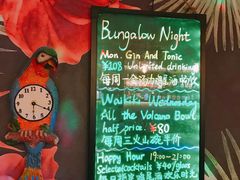 Bungalow Night
Mon. Gin And Tonic
¥108 Unlimited drinking
每周一金汤力随意畅饮
Waikiki Wednesday
All the Volcano Bowl
half price. ¥80
每周三火山碗半价
Happy Hour 19:00-21:00
Selected cocktails ¥40/glass